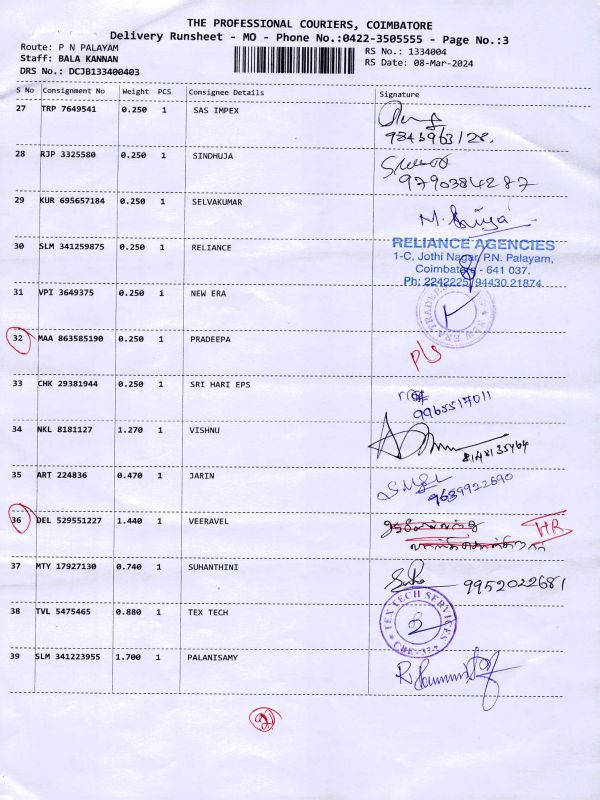 THE PROFESSIONAL COURIERS, COIMBATORE
Delivery Runsheet - MO - Phone No.:0422-3505555 - Page No.:3
Route: P N PALAYAM
RS No.: 1334004
Staff: BALA KANNAN
RS Date: 08-Mar-2024
DRS No.: DCJB133400403
S No Consignment No Weight PCS Consignee Details Signature
27 TRP 7649541 0.250 1 SAS IMPEX
9843963128.
28 RJP 3325580 0.250 1 SINDHUJA
9790384287
29 KUR 695657184 0.250 1 SELVAKUMAR
M.
30 SLM 341259875 0.250 1 RELIANCE
RELIANCE AGENCIES
1-C, Jothi Nagar, P.N. Palayam,
Coimbatore - 641 037.
Ph: 2242225, 94430 21874
31 VPI 3649375 0.250 1 NEW ERA
NEW ERA TRADERS
32 MAA 863585190 0.250 1 PRADEEPA
33 CHK 29381944 0.250 1 SRI HARI EPS
9965517011
34 NKL 8181127 1.270 1 VISHNU
8148135464
35 ART 224836 0.470 1 JARIN
9639922690
36 DEL 529551227 1.440 1 VEERAVEL
HR
37 MTY 17927130 0.740 1 SUHANTHINI
9952022681
38 TVL 5475465 0.880 1 TEX TECH
TEX TECH SERVICES
CBE-37
39 SLM 341223955 1.700 1 PALANISAMY